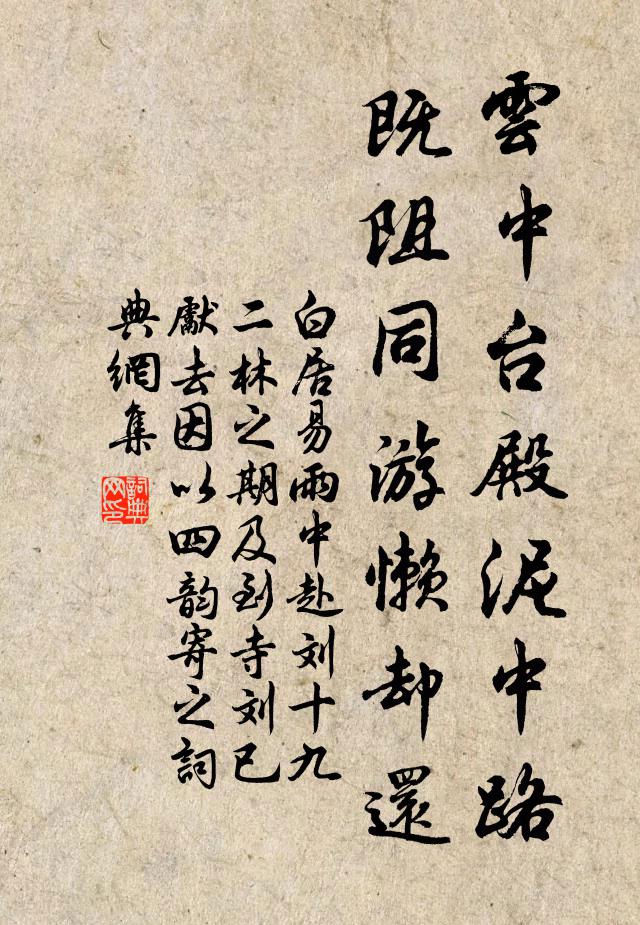 雲中台殿泥中路
既阻同游懶却還
白居易雨中赴刘十九
二林之期及到寺刘已
獻去因以四韵寄之詞
典網集
詞典网印